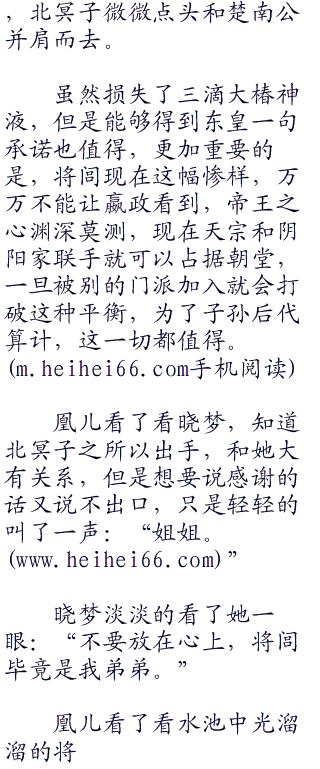 ，北冥子微微点头和楚南公
并肩而去。
虽然损失了三滴大椿神
液，但是能够得到东皇一句
承诺也值得，更加重要的
是，将闾现在这幅惨样，万
万不能让嬴政看到，帝王之
心渊深莫测，现在天宗和阴
阳家联手就可以占据朝堂，
一旦被别的门派加入就会打
破这种平衡，为了子孙后代
算计，这一切都值得。
(m.heihei66.com手机阅读)
凰儿看了看晓梦，知道
北冥子之所以出手，和她大
有关系，但是想要说感谢的
话又说不出口，只是轻轻的
叫了一声：“姐姐。
(www.heihei66.com)”
晓梦淡淡的看了她一
眼：“不要放在心上，将闾
毕竟是我弟弟。”
凰儿看了看水池中光溜
溜的将